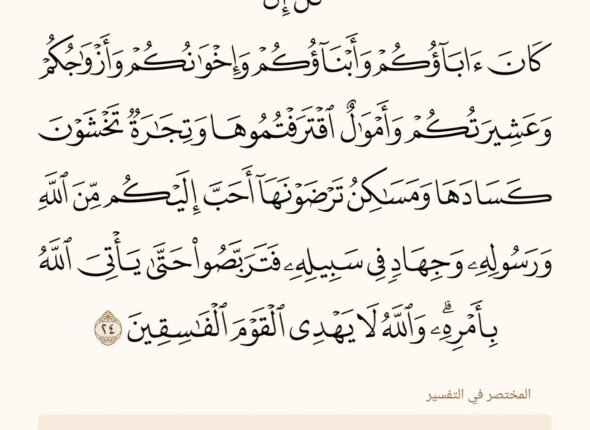 قُلْ إِن
كَانَ ءَابَآؤُكُمْ وَأَبْنَآؤُكُمْ وَإِخْوَٰنُكُمْ وَأَزْوَٰجُكُمْ
وَعَشِيرَتُكُمْ وَأَمْوَٰلٌ ٱقْتَرَفْتُمُوهَا وَتِجَٰرَةٌ تَخْشَوْنَ
كَسَادَهَا وَمَسَٰكِنُ تَرْضَوْنَهَآ أَحَبَّ إِلَيْكُم مِّنَ ٱللَّهِ
وَرَسُولِهِۦ وَجِهَادٍ فِى سَبِيلِهِۦ فَتَرَبَّصُوا۟ حَتَّىٰ يَأْتِىَ ٱللَّهُ
بِأَمْرِهِۦۗ وَٱللَّهُ لَا يَهْدِى ٱلْقَوْمَ ٱلْفَٰسِقِينَ ٢٤
المختصر في التفسير